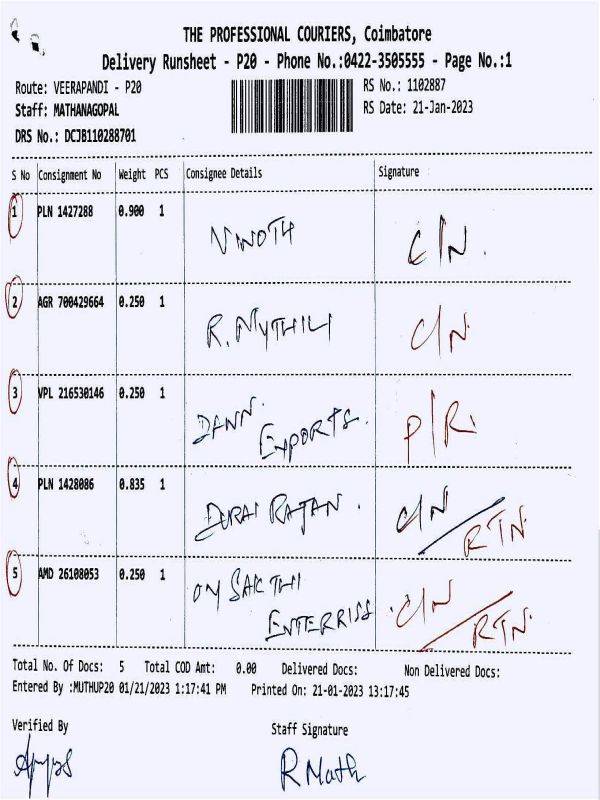 THE PROFESSIONAL COURIERS, Coimbatore
Delivery Runsheet - P20 - Phone No.:0422-3505555 - Page No.:1
Route: VEERAPANDI - P20
RS No.: 1102887
Staff: MATHANAGOPAL
RS Date: 21-Jan-2023
DRS No.: DCJB110288701
S No Consignment No Weight PCS Consignee Details Signature
1 PLN 1427288 0.900 1 VINOTH C/N.
2 AGR 700429664 0.250 1 R. MYTHILI C/N
3 VPL 216530146 0.250 1 DANN. EXPORTS. P/R
4 PLN 1428086 0.835 1 DURAI RAJAN. C/N / RTN
5 AMD 26108053 0.250 1 OM SAKTHI C/N / RTN
ENTERRISS
Total No. Of Docs: 5 Total COD Amt: 0.00 Delivered Docs: Non Delivered Docs:
Entered By :MUTHUP20 01/21/2023 1:17:41 PM Printed On: 21-01-2023 13:17:45
Verified By Staff Signature
R Math